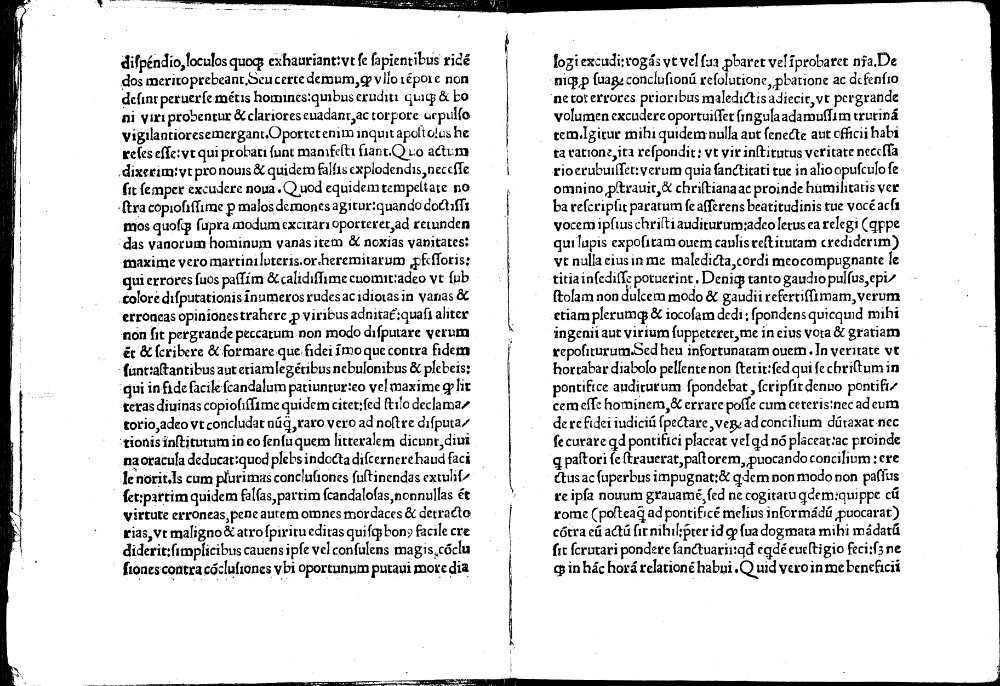 diſpéndio,loculos quoqꝫ exhauriant:vt ſe ſapientibus ridē
dos merito prebeant.Seu certe demum,ꝙ vllo tēpore non
deſint peruerſe mētis homines:quibus eruditi quiqꝫ & bo
ni viri probentur & clariores euadant,ac torpore depulſo
vigilantiores emergant.Oportet enim inquit apoſtolus he
reſes eſſe:vt qui probati ſunt manifeſti fiant.Quo actum
dixerim:vt pro nouis & quidem falſis explodendis,neceſſe
ſit ſemper excudere noua.Quod equidem tempeſtate no
ſtra copioſiſſime ꝑ malos demones agitur:quando doctiſſi
mos quoſqꝫ ſupra modum excitari oporteret,ad retunden
das vanorum hominum vanas item & noxias vanitates:
maxime vero martini luteris.or.heremitarum ꝓfeſſoris:
qui errores ſuos paſſim & calidiſſime euomit:adeo vt ſub
colore diſputationis īnumeros rudes ac idiotas in vanas &
erroneas opiniones trahere ꝓ viribus adnitaē:quaſi aliter
non ſit pergrande peccatum non modo diſputare verum
ēt & ſcribere & formare que fidei īmo que contra fidem
ſunt:aſtantibus aut etiam legētibus nebulonibus & plebeis:
qui in fide facile ſcandalum patiuntur:eo vel maxime ꝙ lit
teras diuinas copioſiſſime quidem citet:ſed ſtilo declama⸗
torio,adeo vt concludat nūꝙ,raro vero ad noſtre diſputa⸗
tionis inſtitutum in eo ſenſu quem litteralem dicunt,diui
na oracula deducat:quod plebs indocta diſcernere haud faci
le norit.Is cum plurimas concluſiones ſuſtinendas extuliſ⸗
ſet:partim quidem falſas,partim ſcandaloſas,nonnullas ēt
virtute erroneas,pene autem omnes mordaces & detracto
rias,vt maligno & atro ſpiritu editas quiſqꝫ bonꝰ facile cre
diderit:ſimplicibus cauens ipſe vel conſulens magis,cōclu
ſiones contra cōcluſiones vbi oportunum putaui more dia
logi excudi:rogās vt vel ſua ꝓbaret vel īprobaret nr̄a.De
niqꝫ ꝓ ſuaꝝ concluſionū reſolutione,ꝓbatione ac defenſio
ne tot errores prioribus maledictis adiecit,vt pergrande
volumen excudere oportuiſſet ſingula adamuſſim trutinā
tem.Igitur mihi quidem nulla aut ſenecte aut officii habi
ta ratione,ita reſpondit: vt vir inſtitutus veritate neceſſa
rio erubuiſſet:verum quia ſanctitati tue in alio opuſculo ſe
omnino ꝓſtrauit,& chriſtiana ac proinde humilitatis ver
ba reſcripſit paratum ſe aſſerens beatitudinis tue vocē acſi
vocem ipſius chriſti auditurum:adeo letus ea relegi (ꝗppe
qui lupis expoſitam ouem caulis reſtitutam crediderim)
vt nulla eius in me maledicta,cordi meo compugnante le
titia inſediſſe potuerint. Deniqꝫ tanto gaudio pulſus,epi⸗
ſtolam non dulcem modo & gaudii refertiſſimam,verum
etiam plerumqꝫ & iocoſam dedi: ſpondens quicquid mihi
ingenii aut virium ſuppeteret,me in eius vota & gratiam
repoſiturum.Sed heu infortunatam ouem. In veritate vt
hortabar diabolo pellente non ſtetit:ſed qui ſe chriſtum in
pontifice auditurum ſpondebat, ſcripſit denuo pontifi⸗
cem eſſe hominem,& errare poſſe cum ceteris:nec ad eum
de re fidei iudiciū ſpectare, veꝝ ad concilium dūtaxat nec
ſe curare ꝗd pontifici placeat vel ꝗd nō placeat:ac proinde
ꝗ paſtori ſe ſtrauerat,paſtorem,ꝓuocando concilium: ere
ctus ac ſuperbus impugnat:& ꝗdem non modo non paſſus
re ipſa nouum grauamē,ſed ne cogitatu ꝗdem:quippe cū
rome (poſteaꝗ̄ ad pontificē melius informādū ꝓuocarat)
cōtra eū actū ſit nihil:p̄ter id ꝙ ſua dogmata mihi mādatū
ſit ſcrutari pondere ſanctuarii:qd̄ eqdē eueſtigio feci:ſꝫ ne
ꝗ̄ in hāc horā relationē habui.Quid vero in me beneficii